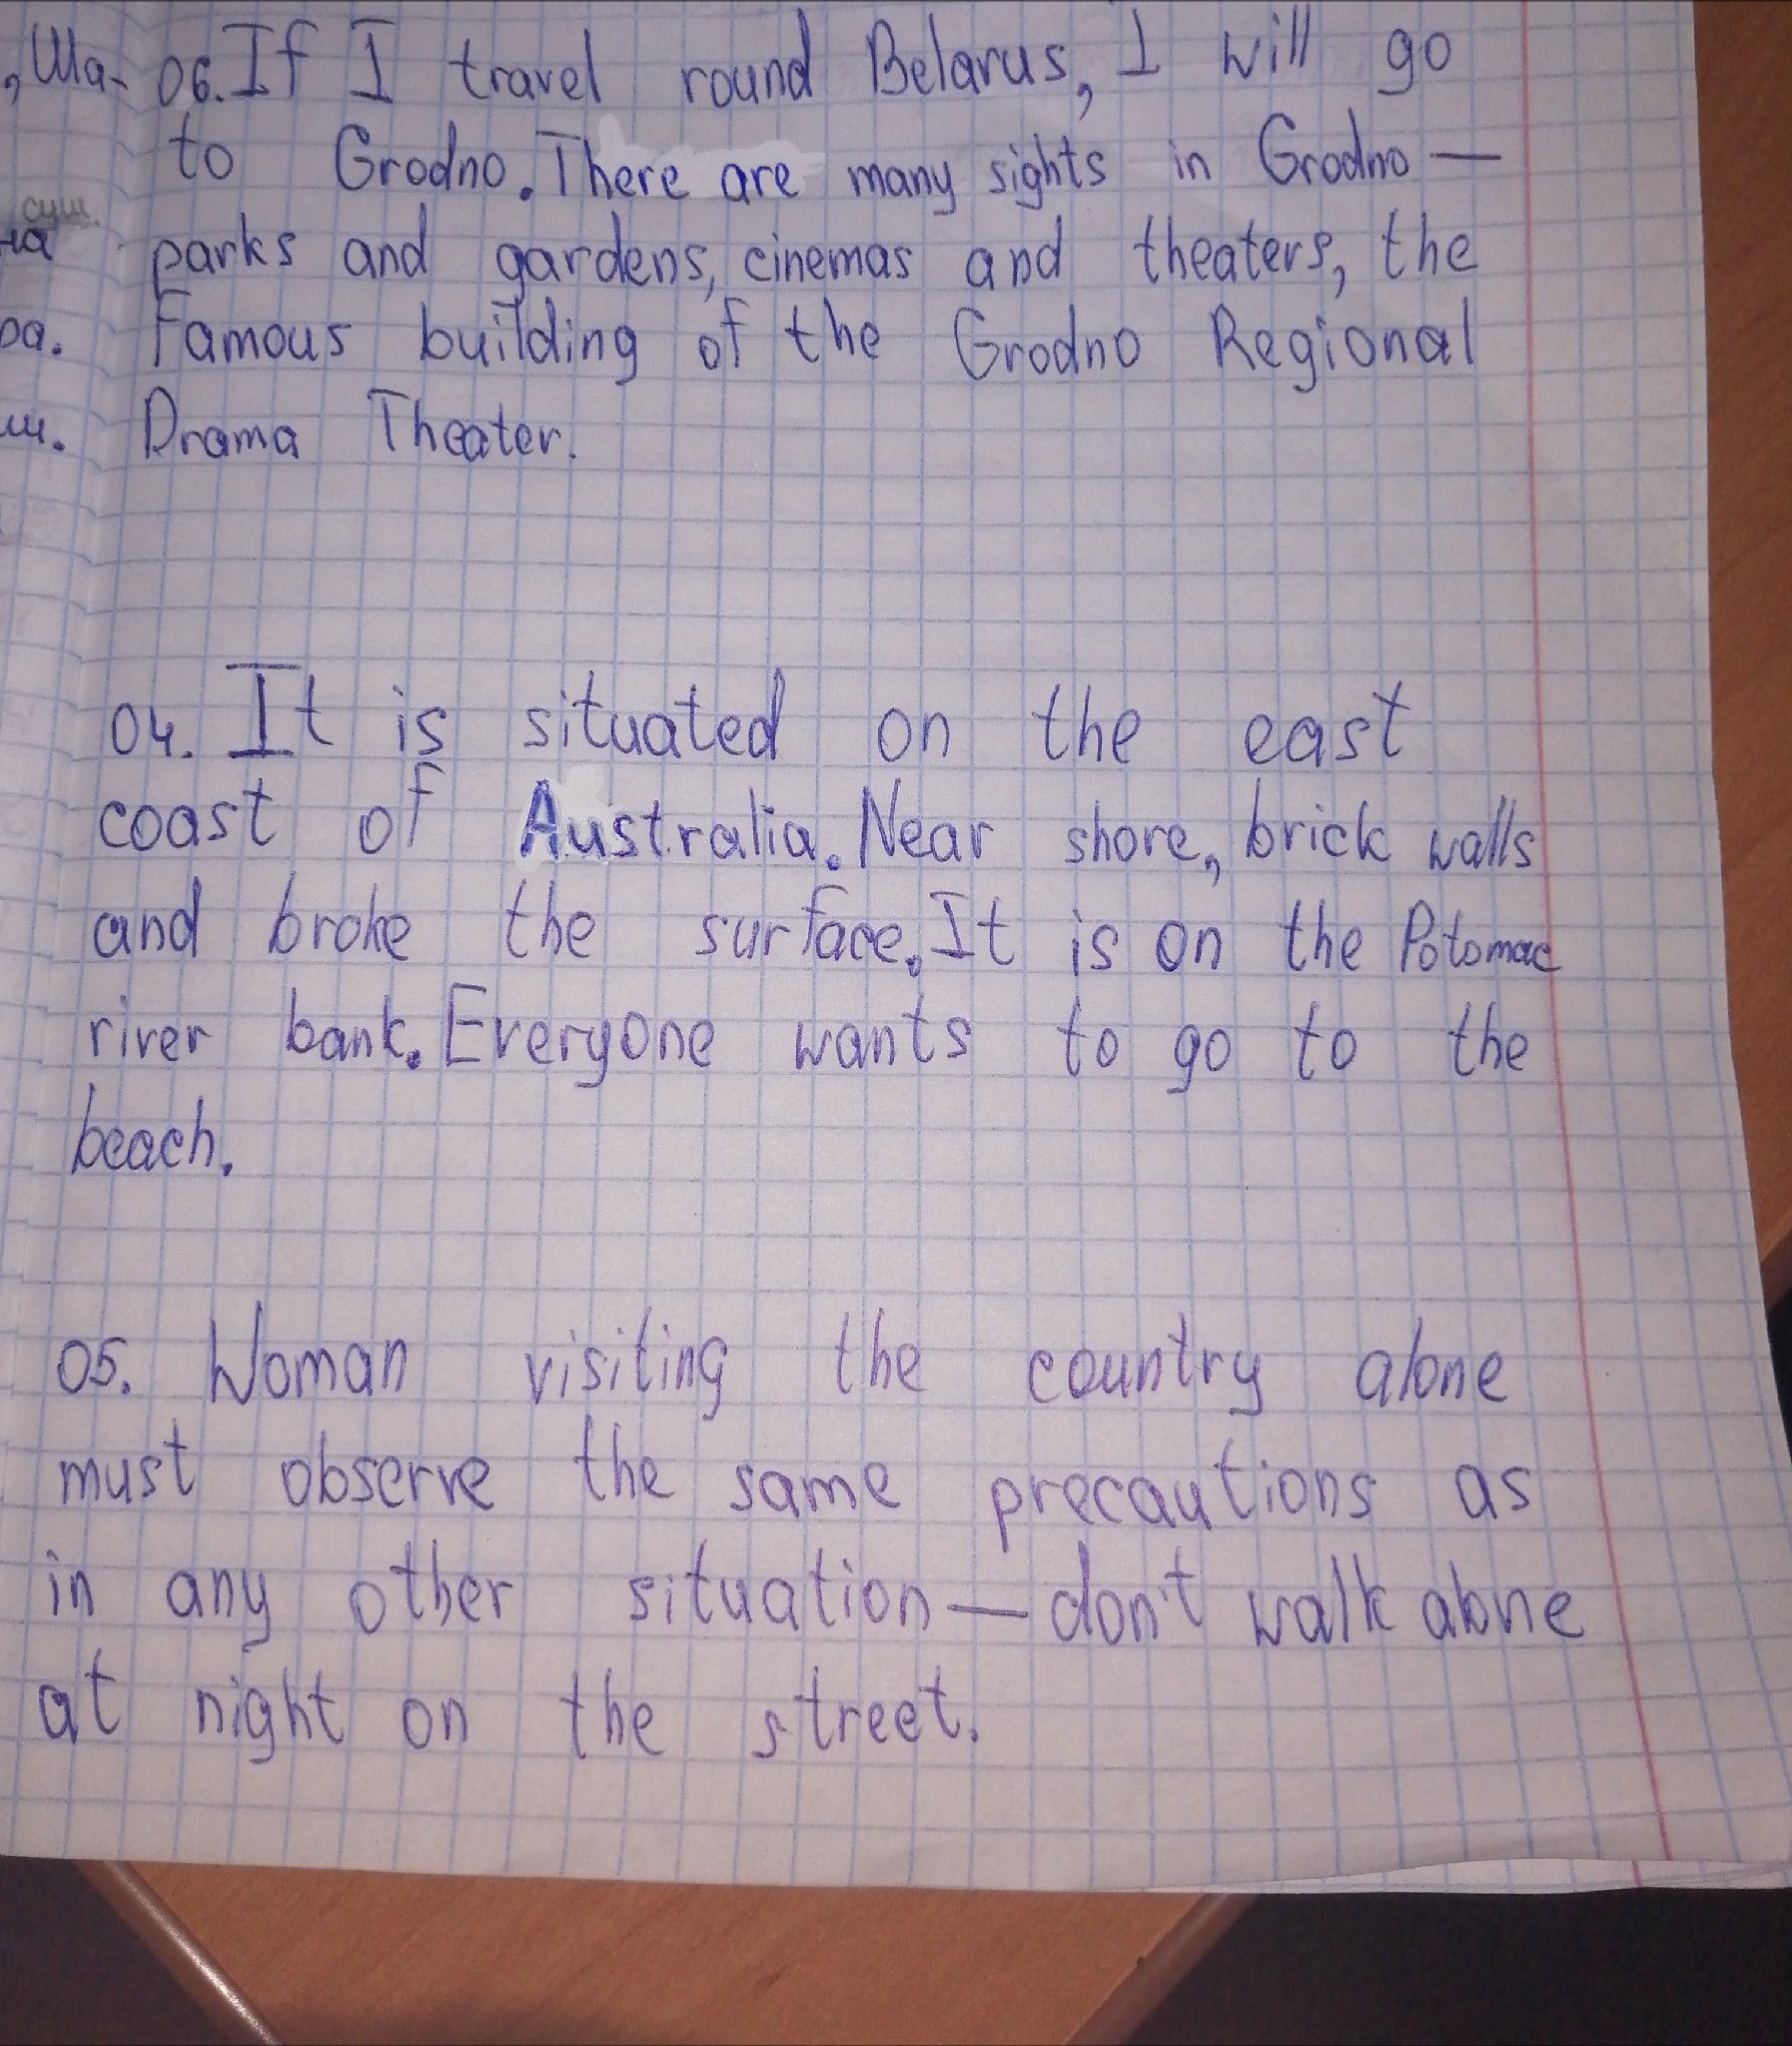 , Ша- 06. If I travel round Belarus, I will go
to Grodno. There are many sights in Grodno —
сущ.
на parks and gardens, cinemas and theaters, the
ра. Famous building of the Grodno Regional
щ. Drama Theater.
04. It is situated on the east
coast of Australia. Near shore, brick walls
and broke the surface. It is on the Potomac
river bank. Everyone wants to go to the
beach.
05. Woman visiting the country alone
must observe the same precautions as
in any other situation — don't walk alone
at night on the street.